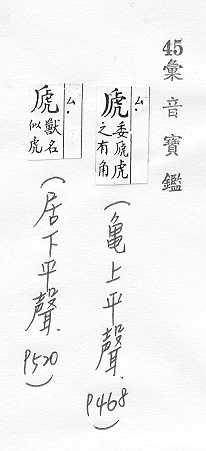 45 彙音寶鑑
ㄙ·
虒 委虒虎
之有角
(亀上平聲. P468)
ㄙ·
虒 獸名
似虎
(居下平聲. P520)